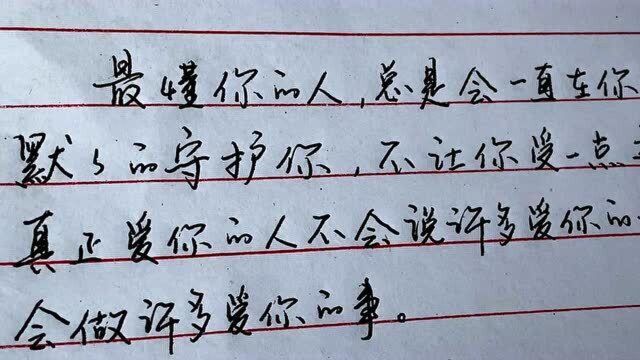 最懂你的人,总是会一直在你
默々的守护你,不让你受一点
真正爱你的人不会说许多爱你的
会做许多爱你的事。